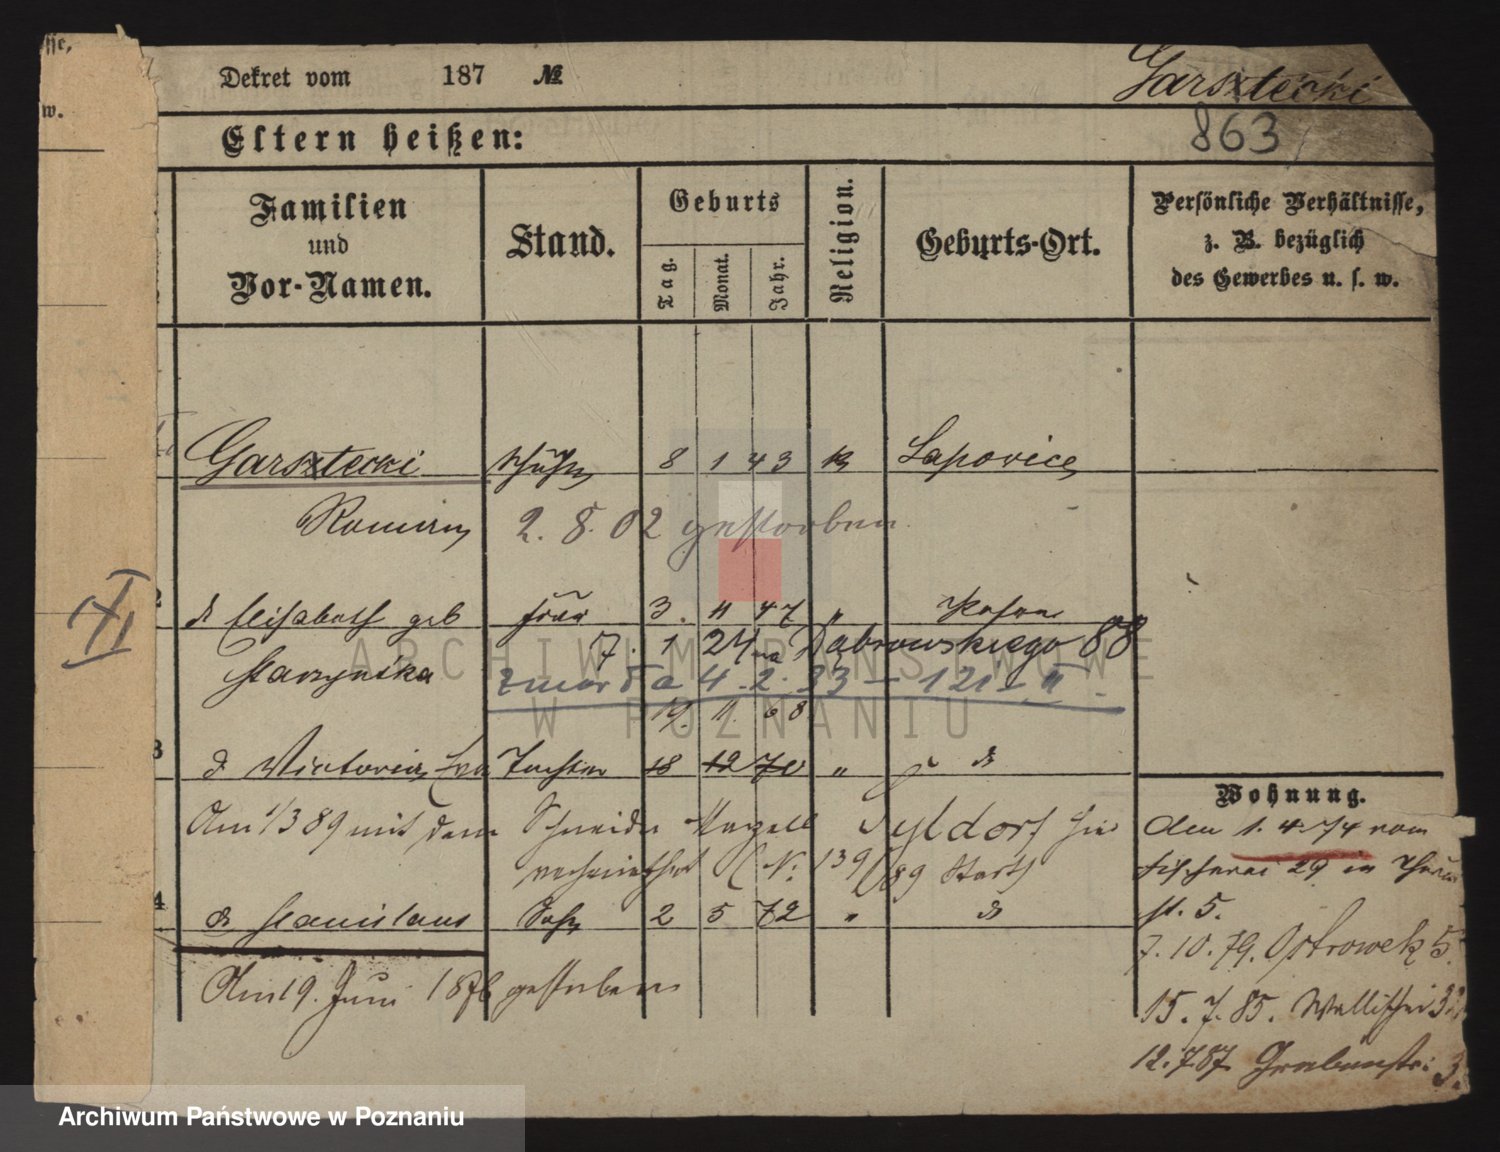 Dekret vom 187 №
Garsztecki
863
Eltern heißen:
Familien und Vor-Namen.
Stand.
Geburts
Tag.
Monat.
Jahr.
Religion.
Geburts-Ort.
Persönliche Verhältnisse,
z. B. bezüglich
des Gewerbes u. s. w.
Garsztecki 8 1 43 k
Roman 2. 8. 02 gestorben
Elisabeth geb Frau 3. 11 47 " Posen
7. 1 24 na Dąbrowskiego 88
Starzynska zmarła 4. 2. 33 – 121 –
XI
11. 68
3 Victoria Eva Tochter 18 12 70 "
Wohnung.
Am 1/3 89 mit dem Schneider Hier
verheirathet (N: 139/89 Start)
4 Stanislaus Sohn 2 5 72 "
Am 19. Juni 1876 gestorben
Den 1. 4. 74 vom
Fischerei 29 in
st. 5.
7. 10. 79. Ostrowek 5.
15. 7. 85. Wallischei
12. 7. 87 Grabenstr. 3.
ARCHIWUM PAŃSTWOWE
W POZNANIU
Archiwum Państwowe w Poznaniu